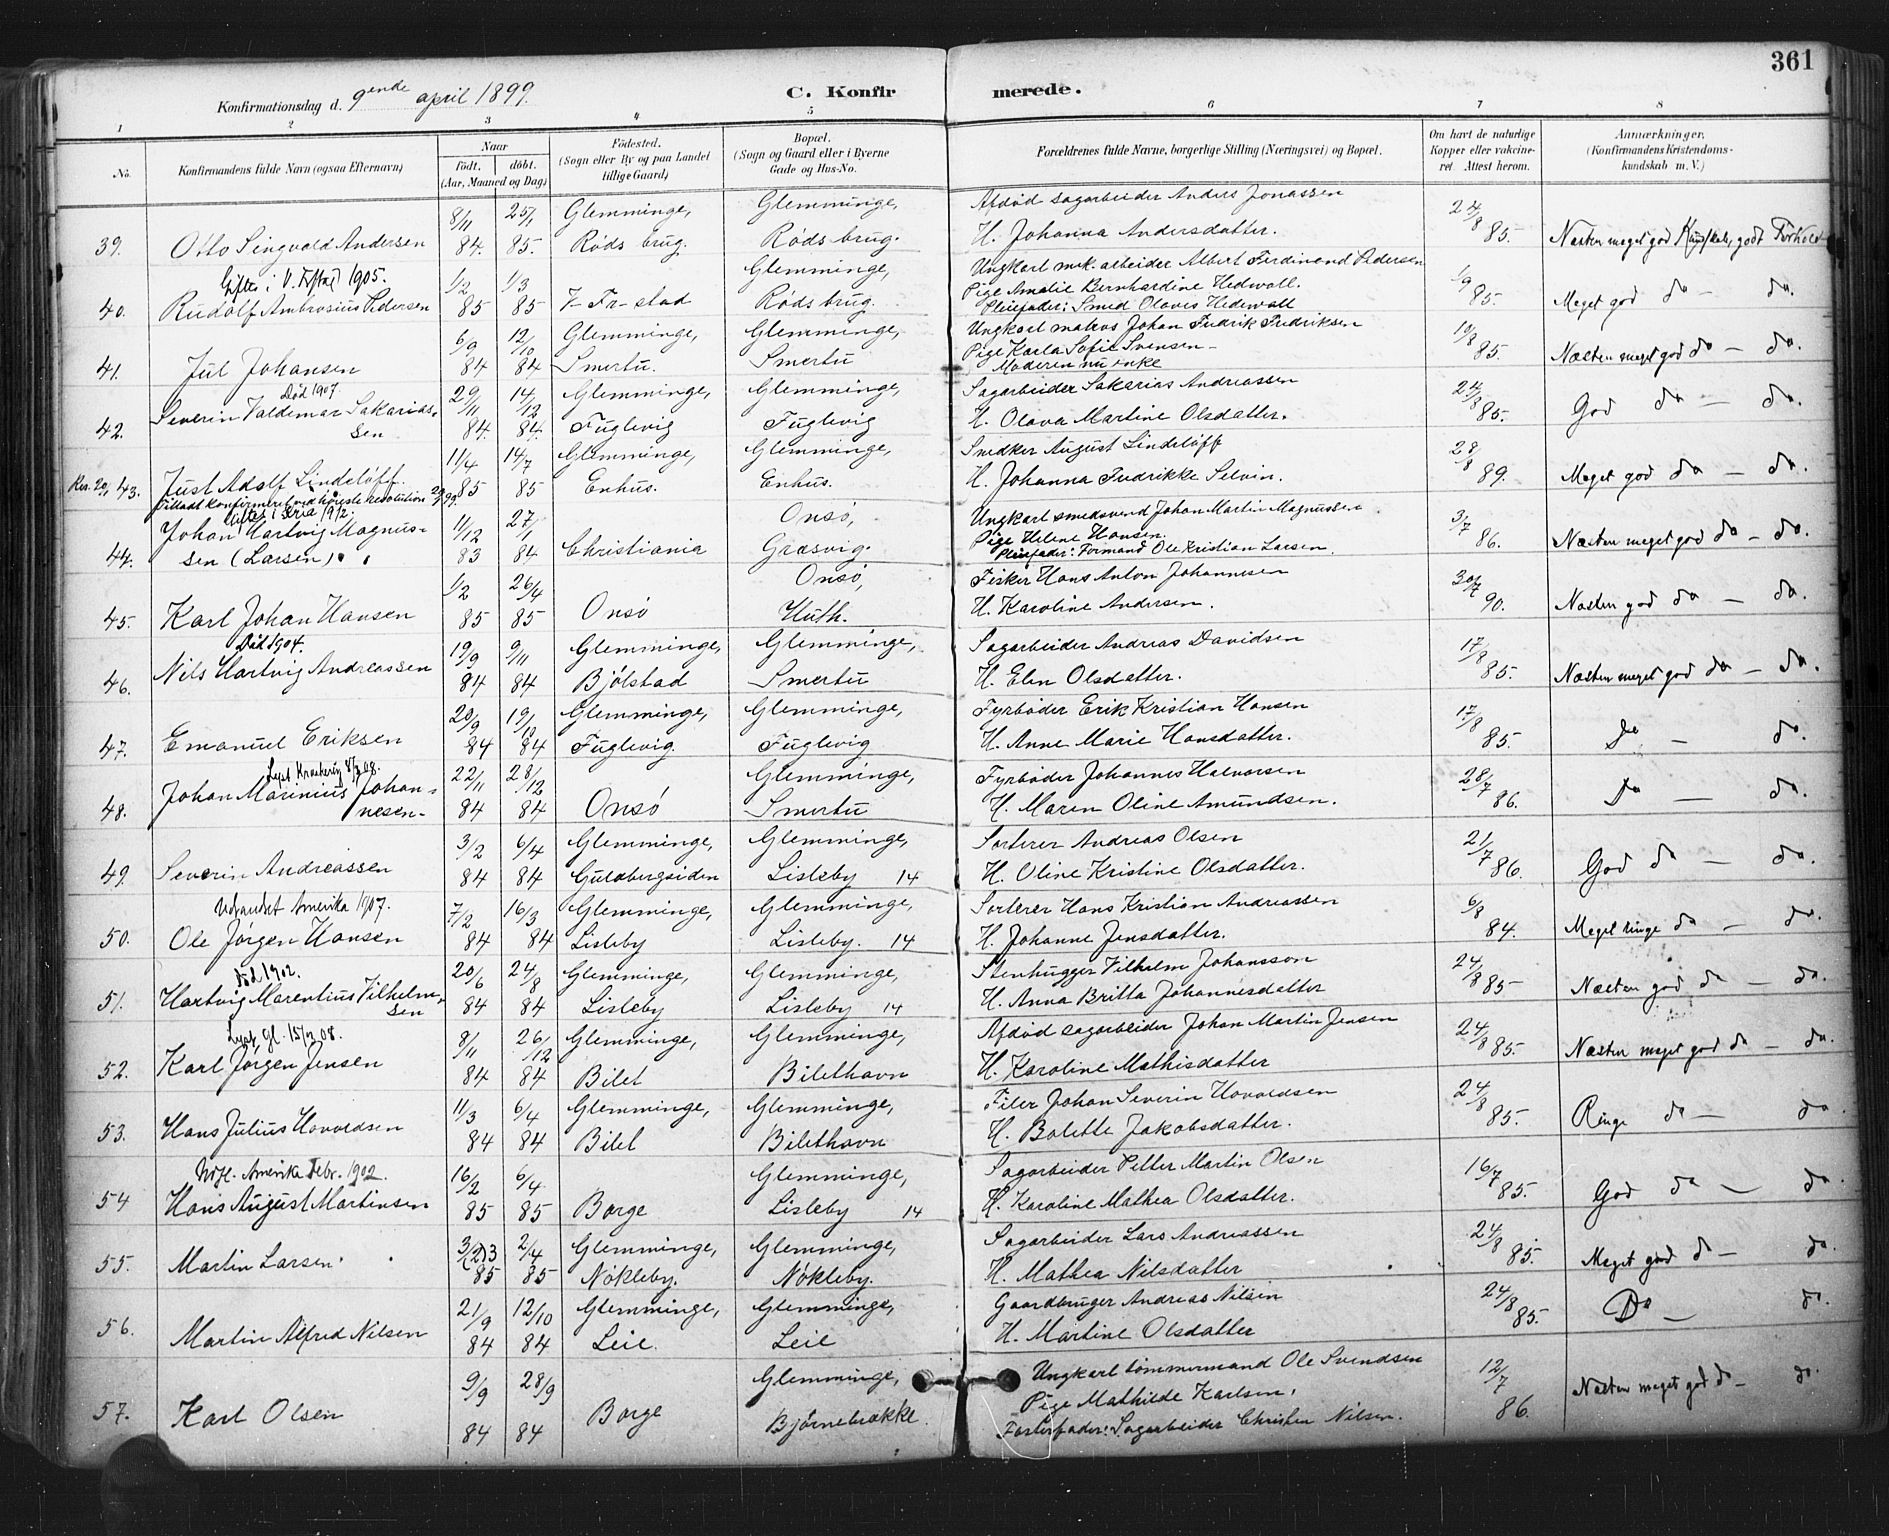 361
Konfirmationsdag d. 9ende april 1899.
C. Konfirmerede.
1 2 3 4 5 6 7 8
No. Konfirmandens fulde Navn (ogsaa Efternavn) Naar født. døbt. (Aar, Maaned og Dag) Fødested. (Sogn eller By og paa Landet tillige Gaard) Bopæl. (Sogn og Gaard eller i Byerne Gade og Hus-No. Forældrenes fulde Navne, borgerlige Stilling (Næringsvei) og Bopæl. Om havt de naturlige Kopper eller vaccineret. Attest herom. Anmærkninger, (Konfirmandens Kristendomskundskab m. V.)
39. Otto Singvald Andersen 8/11 84. 25/1 85. Glemminge, Røds brug. Glemminge, Røds brug. Afdød sagarbeider Anders Jonassen H. Johanna Andersdatter. 24/8 85. Næsten meget god Kundskab, godt Forhold
Giftet i V. Fr.stad 1905.
40. Rudolf Ambrosius Pedersen 1/2 85 1/3 85 V. Fr-stad Glemminge, Røds brug. Ungkarl mek. arbeider Albert Ferdinand Pedersen Pige Amalie Bernhardine Hedevall. Pleiefader: Smed Olaves Hedevall 1/9 85. Meget god do - do.
41. Jul Johansen 6/9 84 12/10 84 Glemminge, Smertu. Glemminge, Smertu Ungkarl matros Johan Fredrik Fredriksen Pige Karla Sofie Svensen - Moderen nu enke 19/8 85. Næsten meget god do - do.
Død 1907.
42. Severin Valdemar Sakariassen 29/11 84. 14/12 84. Glemminge, Fuglevig Glemminge, Fuglevig Sagarbeider Sakarias Andreassen H. Olava Martine Olsdatter. 24/8 85. God do - do.
43. Just Adolf Lindeløff. 11/4 85 14/7 85 Glemminge, Enhus. Glemminge, Enhus. Snedker August Lindeløff H. Johanna Fredrikke Selvin. 28/8 89. Meget god do - do.
Tilladt konfirmeret ved høieste resolution
Giftet i Kria 1912.
44. Johan Hartvig Magnussen (Larsen) 11/12 83 27/1 84 Christiania Onsø, Græsvig. Ungkarl smedsvend Johan Martin Magnussen Pige Helene Hansen. Pleiefader: Formand Ole Kristian Larsen. 3/7 86. Næsten meget god do - do.
45. Karl Johan Hansen 1/2 85 26/4 85 Onsø Onsø, Huth. Fisker Hans Anton Johannesen H. Karoline Andersen. 30/7 90. Næsten god do - do.
Død 1904.
46. Nils Hartvig Andreassen 19/9 84 9/11 84 Glemminge, Bjølstad Glemminge, Smertu Sagarbeider Andreas Davidsen H. Elen Olsdatter. 17/8 85. Næsten meget god do - do.
47. Emanuel Eriksen 20/9 84 19/10 84 Glemminge, Fuglevig. Glemminge, Fuglevig Fyrbøder Erik Kristian Hansen H. Anne Marie Hansdatter. 17/8 85. Do - do.
48. Johan Marinius Johannesen. 22/11 84 28/12 84 Onsø Glemminge, Smertu Fyrbøder Johannes Halvorsen H. Maren Oline Amundsen. 28/7 86. Do - do.
49. Severin Andreassen 3/2 84 6/4 84 Glemminge, Guldbergsiden Glemminge, Lisleby 14 Sorterer Andreas Olsen H. Oline Kristine Olsdatter. 21/7 86. God do - do.
Udvandret Amerika 1907.
50. Ole Jørgen Hansen 7/2 84 16/3 84 Glemminge, Lisleby Glemminge, Lisleby. 14 Sorterer Hans Kristian Andreassen H. Johanne Jensdatter. 6/8 84. Meget ringe do - do.
død 1902.
51. Hartvig Marentius Vilhelmsen 20/6 84 24/8 84 Glemminge, Lisleby Glemminge, Lisleby 14 Stenhugger Vilhelm Johansson H. Anna Britta Johannesdatter 24/8 85. Næsten god do - do.
Lyst Gl. 15/2 08.
52. Karl Jørgen Jensen 8/11 84 26/12 84 Glemminge, Bilet Glemminge, Bilethavn Afdød sagarbeider Johan Martin Jensen H. Karoline Mathisdatter 24/8 85. Næsten meget god do - do.
53. Hans Julius Hovvldsen 11/3 84 6/4 84 Glemminge, Bilet Glemminge, Bilethavn Filer Johan Severin Hovoldsen H. Bolette Jakobsdatter. 24/8 85. Ringe do - do.
Udfl. Amerika Febr. 1902.
54 Hans August Martinsen 16/2 85 6/4 85 Borge Glemminge, Lisleby 14 Sagarbeider Petter Martin Olsen H. Karoline Mathea Olsdatter. 16/7 85. God do - do.
55. Martin Larsen 3/(2)3 85 2/4 85 Glemminge, Nøkleby. Glemminge, Nøkleby. Sagarbeider Lars Andreassen H. Mathea Nilsdatter 24/8 85. Meget god do - do.
56. Martin Alfred Nilsen 21/9 84 12/10 84 Glemminge, Leie. Glemminge, Leie Gaardbruger Andreas Nilsen H. Martine Olsdatter 24/8 85. Do - do.
57. Karl Olsen 9/9 84 28/9 84 Borge Glemminge, Bjørnebrække. Ungkarl tømmermand Ole Svendsen Pige Mathilde Karlsen, Fosterfader: Sagarbeider Christen Nilsen. 12/7 86. Næsten meget god do - do.